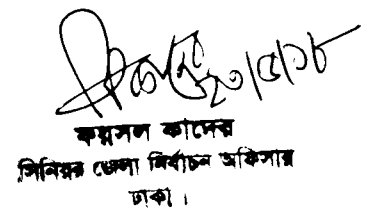 ২০/৫/১৮
ফয়সল কাদের
সিনিয়র জেলা নির্বাচন অফিসার
ঢাকা।